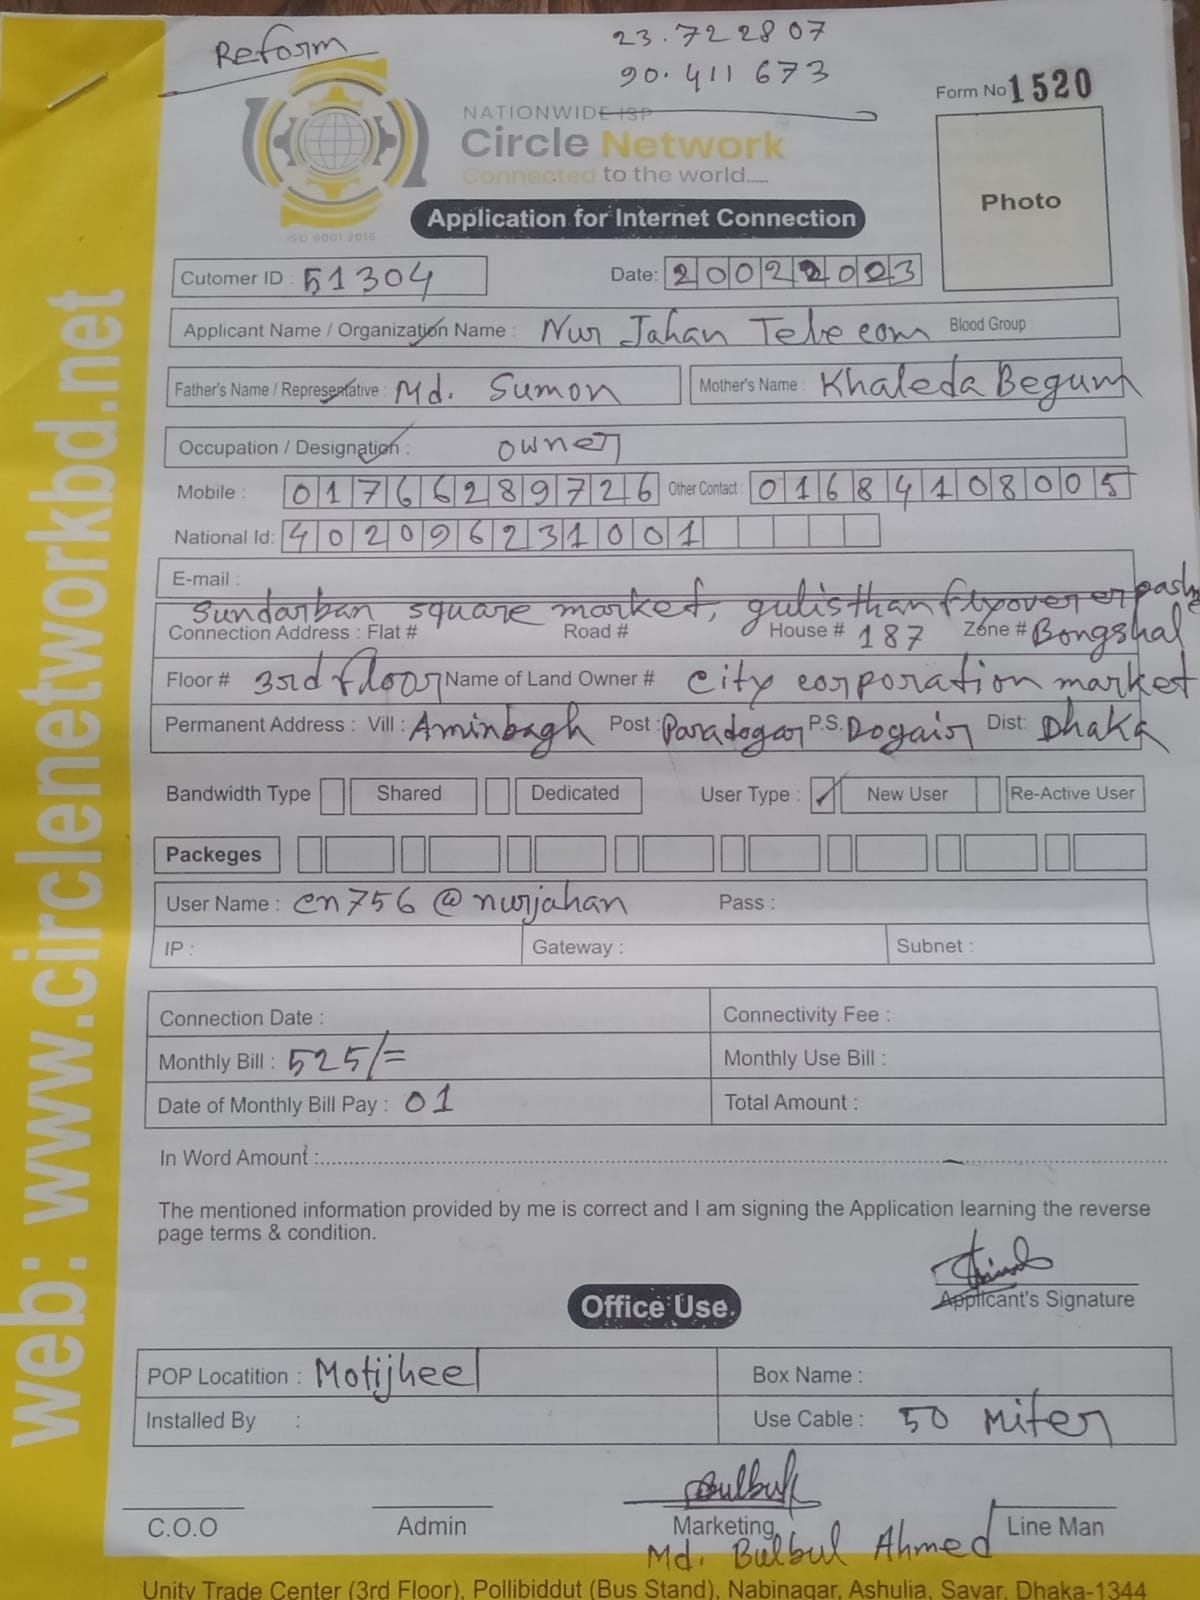 Reform
23.722807
90.411673
Form No 1520
NATIONWIDE ISP
Circle Network
Connected to the world.....
ISO 9001:2015
Photo
Application for Internet Connection
Cutomer ID : 51304 Date: 20022023
Applicant Name / Organization Name : Nur Jahan Telecom Blood Group :
Father's Name / Representative : Md. Sumon Mother's Name : Khaleda Begum
Occupation / Designation : owner
Mobile : 01766289726 Other Contact : 01684108005
National Id: 402096231001
E-mail :
Sundarban square market, gulisthan flyover er pashe
Connection Address : Flat # Road # House # 187 Zone # Bongshal
Floor # 3rd floor Name of Land Owner # city corporation market
Permanent Address : Vill : Aminbagh Post : Paradogar P.S. Dogair Dist: Dhaka
Bandwidth Type Shared Dedicated User Type : ✓ New User Re-Active User
Packeges
User Name : cn756@nurjahan Pass :
IP : Gateway : Subnet :
Connection Date : Connectivity Fee :
Monthly Bill : 525/= Monthly Use Bill :
Date of Monthly Bill Pay : 01 Total Amount :
In Word Amount :
The mentioned information provided by me is correct and I am signing the Application learning the reverse
page terms & condition.
Applicant's Signature
Office Use.
POP Locatition : Motijheel Box Name :
Installed By : Use Cable : 50 miter
Bulbul
C.O.O Admin Marketing Line Man
Md. Bulbul Ahmed
Unity Trade Center (3rd Floor), Pollibiddut (Bus Stand), Nabinagar, Ashulia, Savar, Dhaka-1344
web: www.circlenetworkbd.net